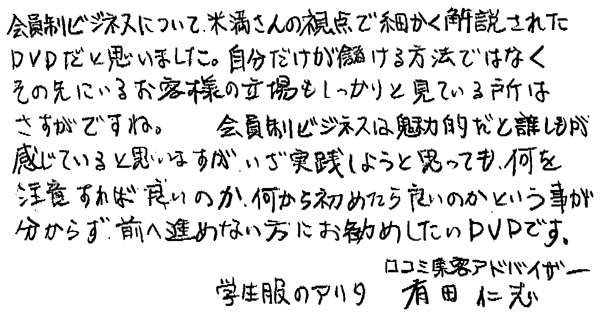 会員制ビジネスについて、米満さんの視点で細かく解説された
DVDだと思いました。自分だけが儲ける方法ではなく
その先にいるお客様の立場もしっかりと見ている所は
さすがですね。 会員制ビジネスは魅力的だと誰しもが
感じていると思いますが、いざ実践しようと思っても、何を
注意すれば良いのか、何から初めたら良いのかという事が
分からず、前へ進めない方にお勧めしたいDVDです。
口コミ集客アドバイザー
学生服のアリタ 有田 仁志